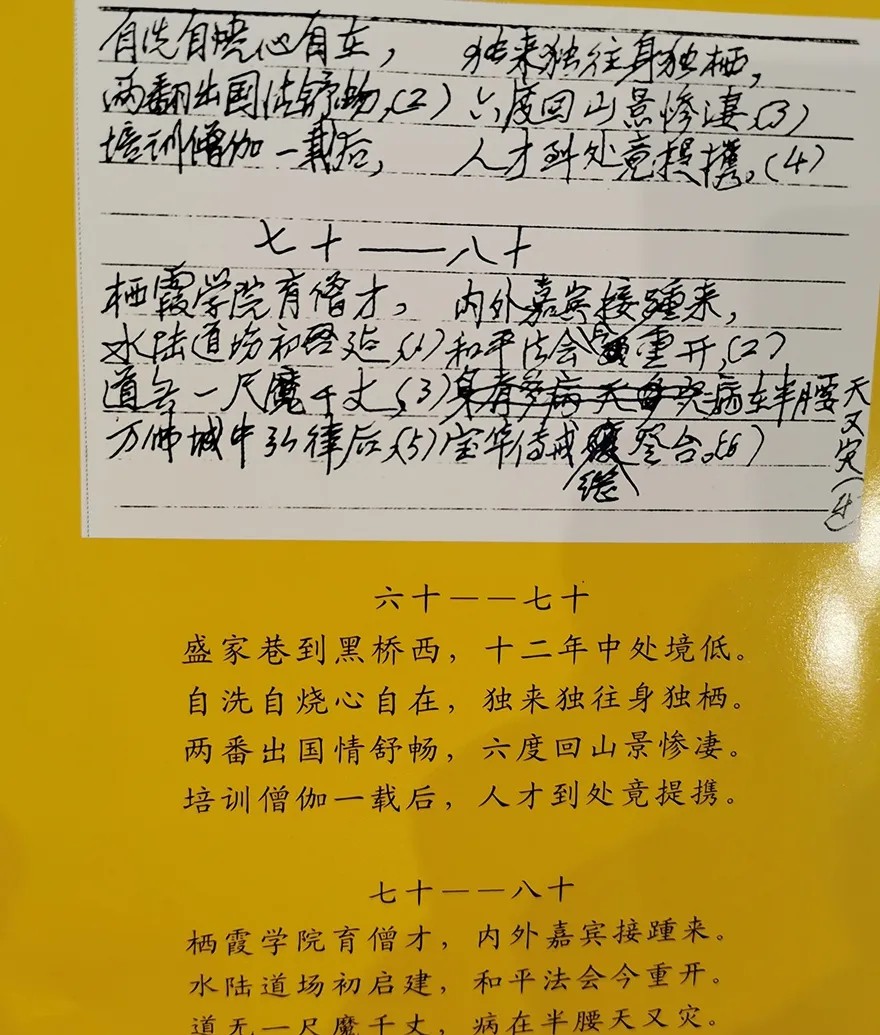 自洗自烧心自在， 独来独往身独栖，
两翻出国法舒畅，(2) 六度回山景惨凄，(3)
培训僧伽一载后， 人才到处竟提携。(4)
七十——八十
栖霞学院育僧才， 内外嘉宾接踵来，
水陆道场初启建，(1) 和平法会重开，(2)
道无一尺魔千丈，(3) 病在半腰天又灾(4)
万佛城中弘律后，(5) 宝华传戒继登台。(6)
六十——七十
盛家巷到黑桥西，十二年中处境低。
自洗自烧心自在，独来独往身独栖。
两番出国情舒畅，六度回山景惨凄。
培训僧伽一载后，人才到处竟提携。
七十——八十
栖霞学院育僧才，内外嘉宾接踵来。
水陆道场初启建，和平法会今重开。
道无一尺魔千丈，病在半腰天又灾。